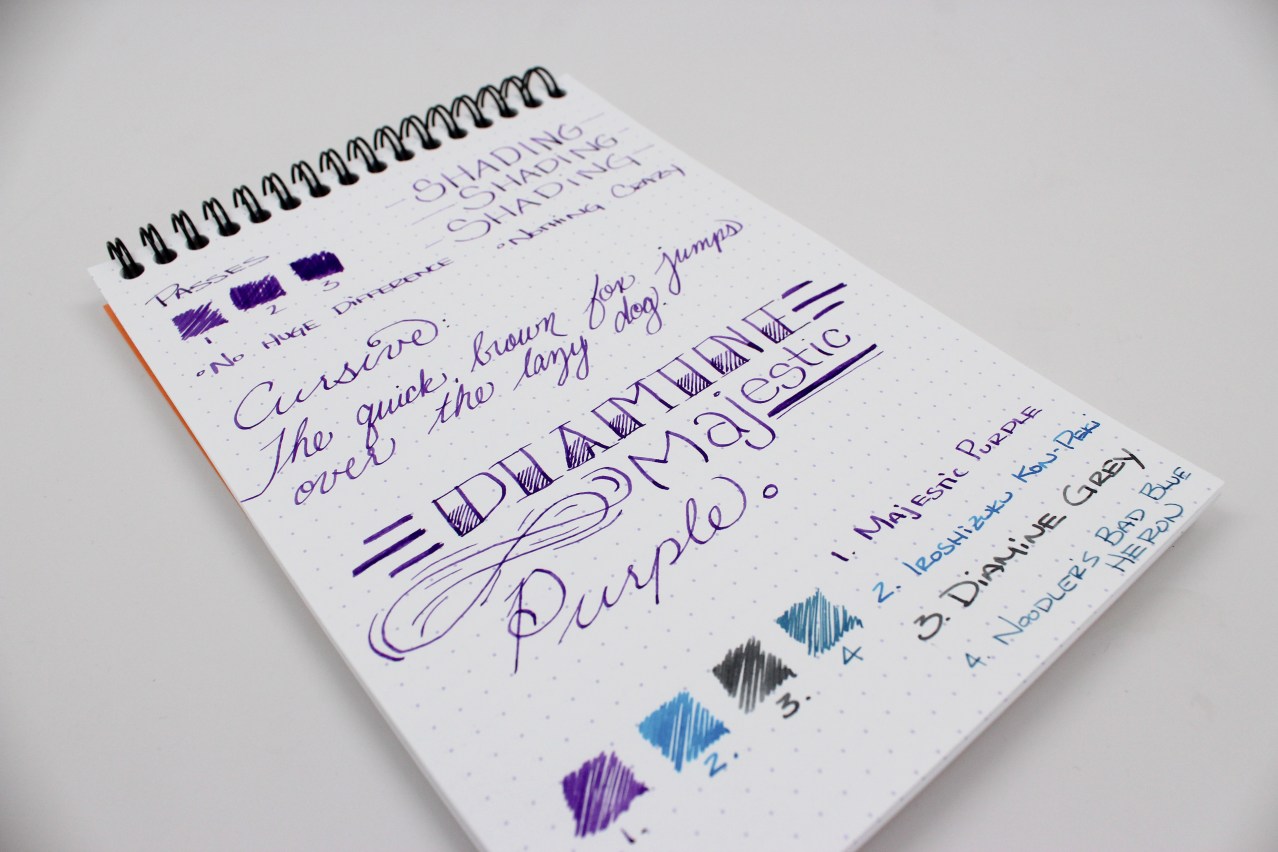 SHADING
SHADING
SHADING
• NOTHING CRAZY
PASSES
1 2 3
• NO HUGE DIFFERENCE
Cursive:
The quick brown fox jumps
over the lazy dog.
DIAMINE
Majestic
Purple.
1. MAJESTIC PURPLE
2. IROSHIZUKU KON-PEKI
3. DIAMINE GREY
4. NOODLER'S BAD BLUE
HERON
1.
2.
3.
4